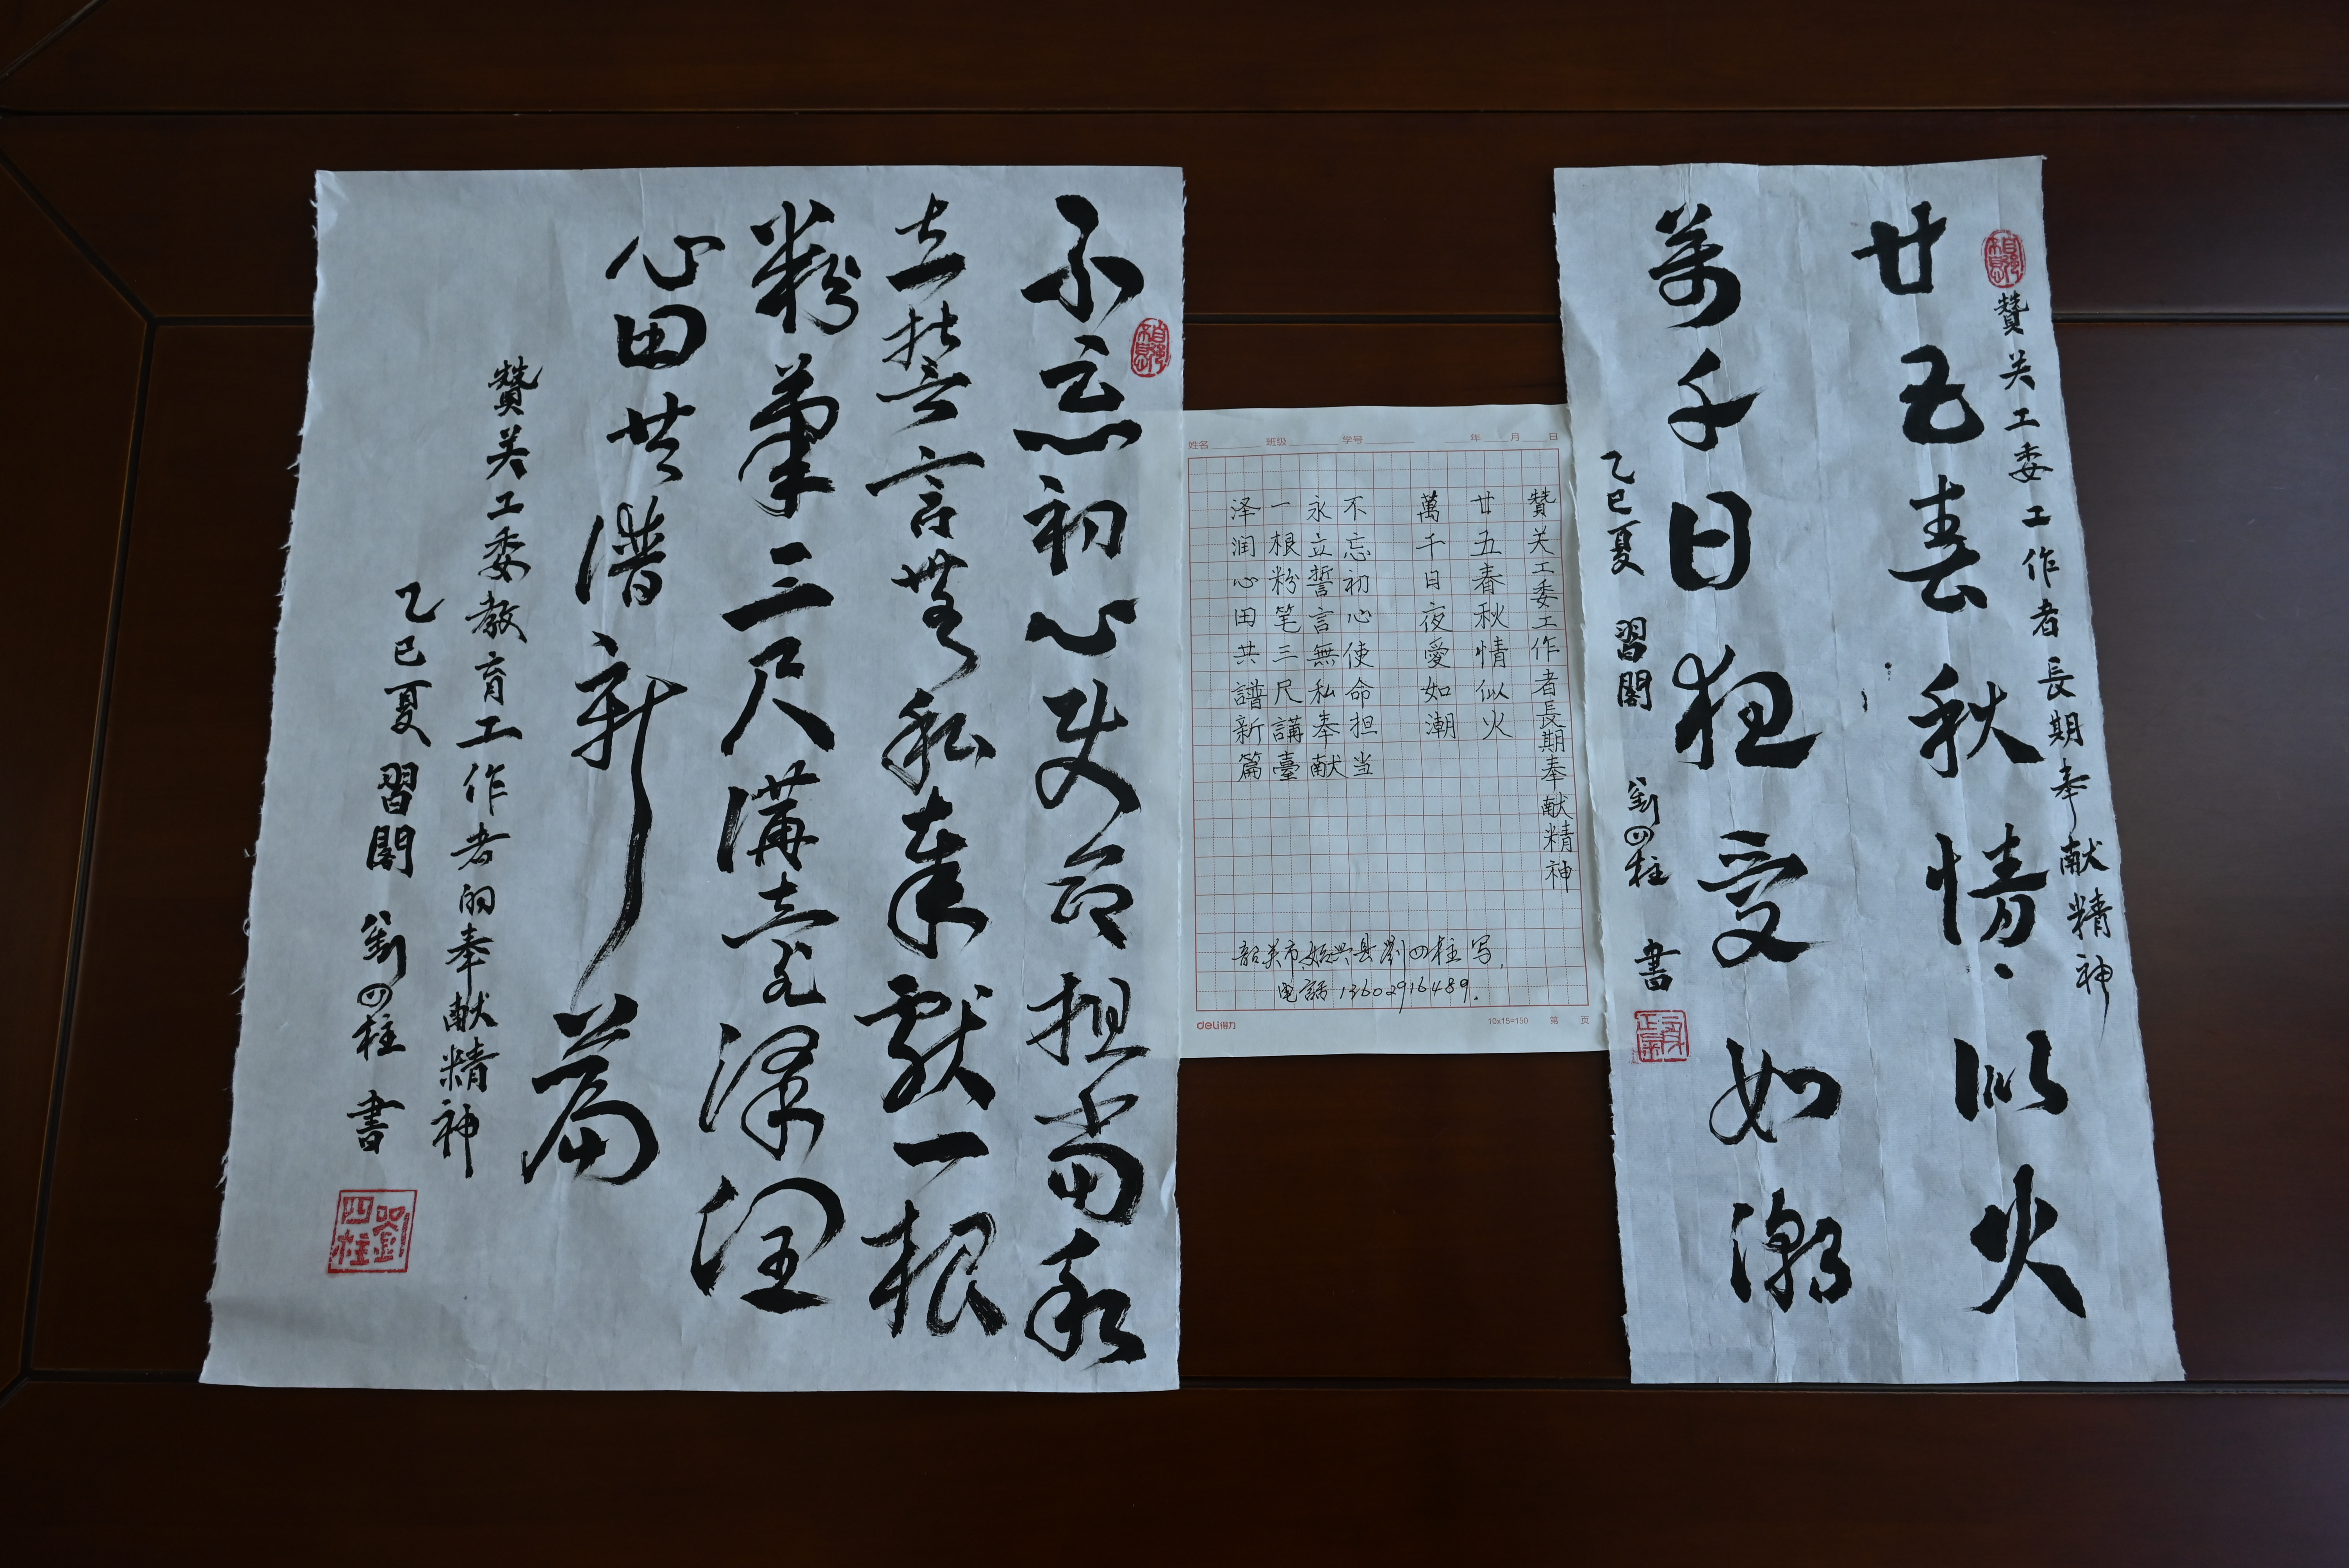 贊关工委工作者長期奉献精神
廿五春秋情似火
萬千日夜受如潮
乙巳夏 習閣 劉四柱 書
姓名 班级 学号 年 月 日
贊关工委工作者長期奉献精神
廿五春秋情似火
萬千日夜愛如潮
不忘初心使命担当
永立誓言無私奉献
一根粉笔三尺講臺
泽润心田共譜新篇
韶关市始兴县劉四柱写.
电話13602916489.
deli得力
10x15=150 第 页
不忘初心使命担当永
立誓言無私奉獻一根
粉筆三尺講臺泽润
心田共譜新篇
贊关工委教育工作者的奉献精神
乙巳夏 習閣 劉四柱 書
劉四柱